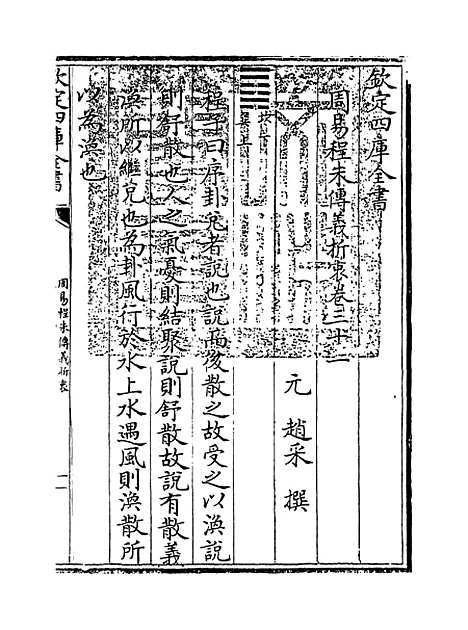 欽定四庫全書
周易程朱傳義折衷卷三十二
元 趙采 撰
坎下
巽上
程子曰序卦兌者說也說而後散之故受之以渙說
則舒散也人之氣憂則結聚說則舒散故說有散義
渙所以繼兌也為卦風行於水上水遇風則渙散所
以為渙也
欽定四庫全書
周易程朱傳義折衷